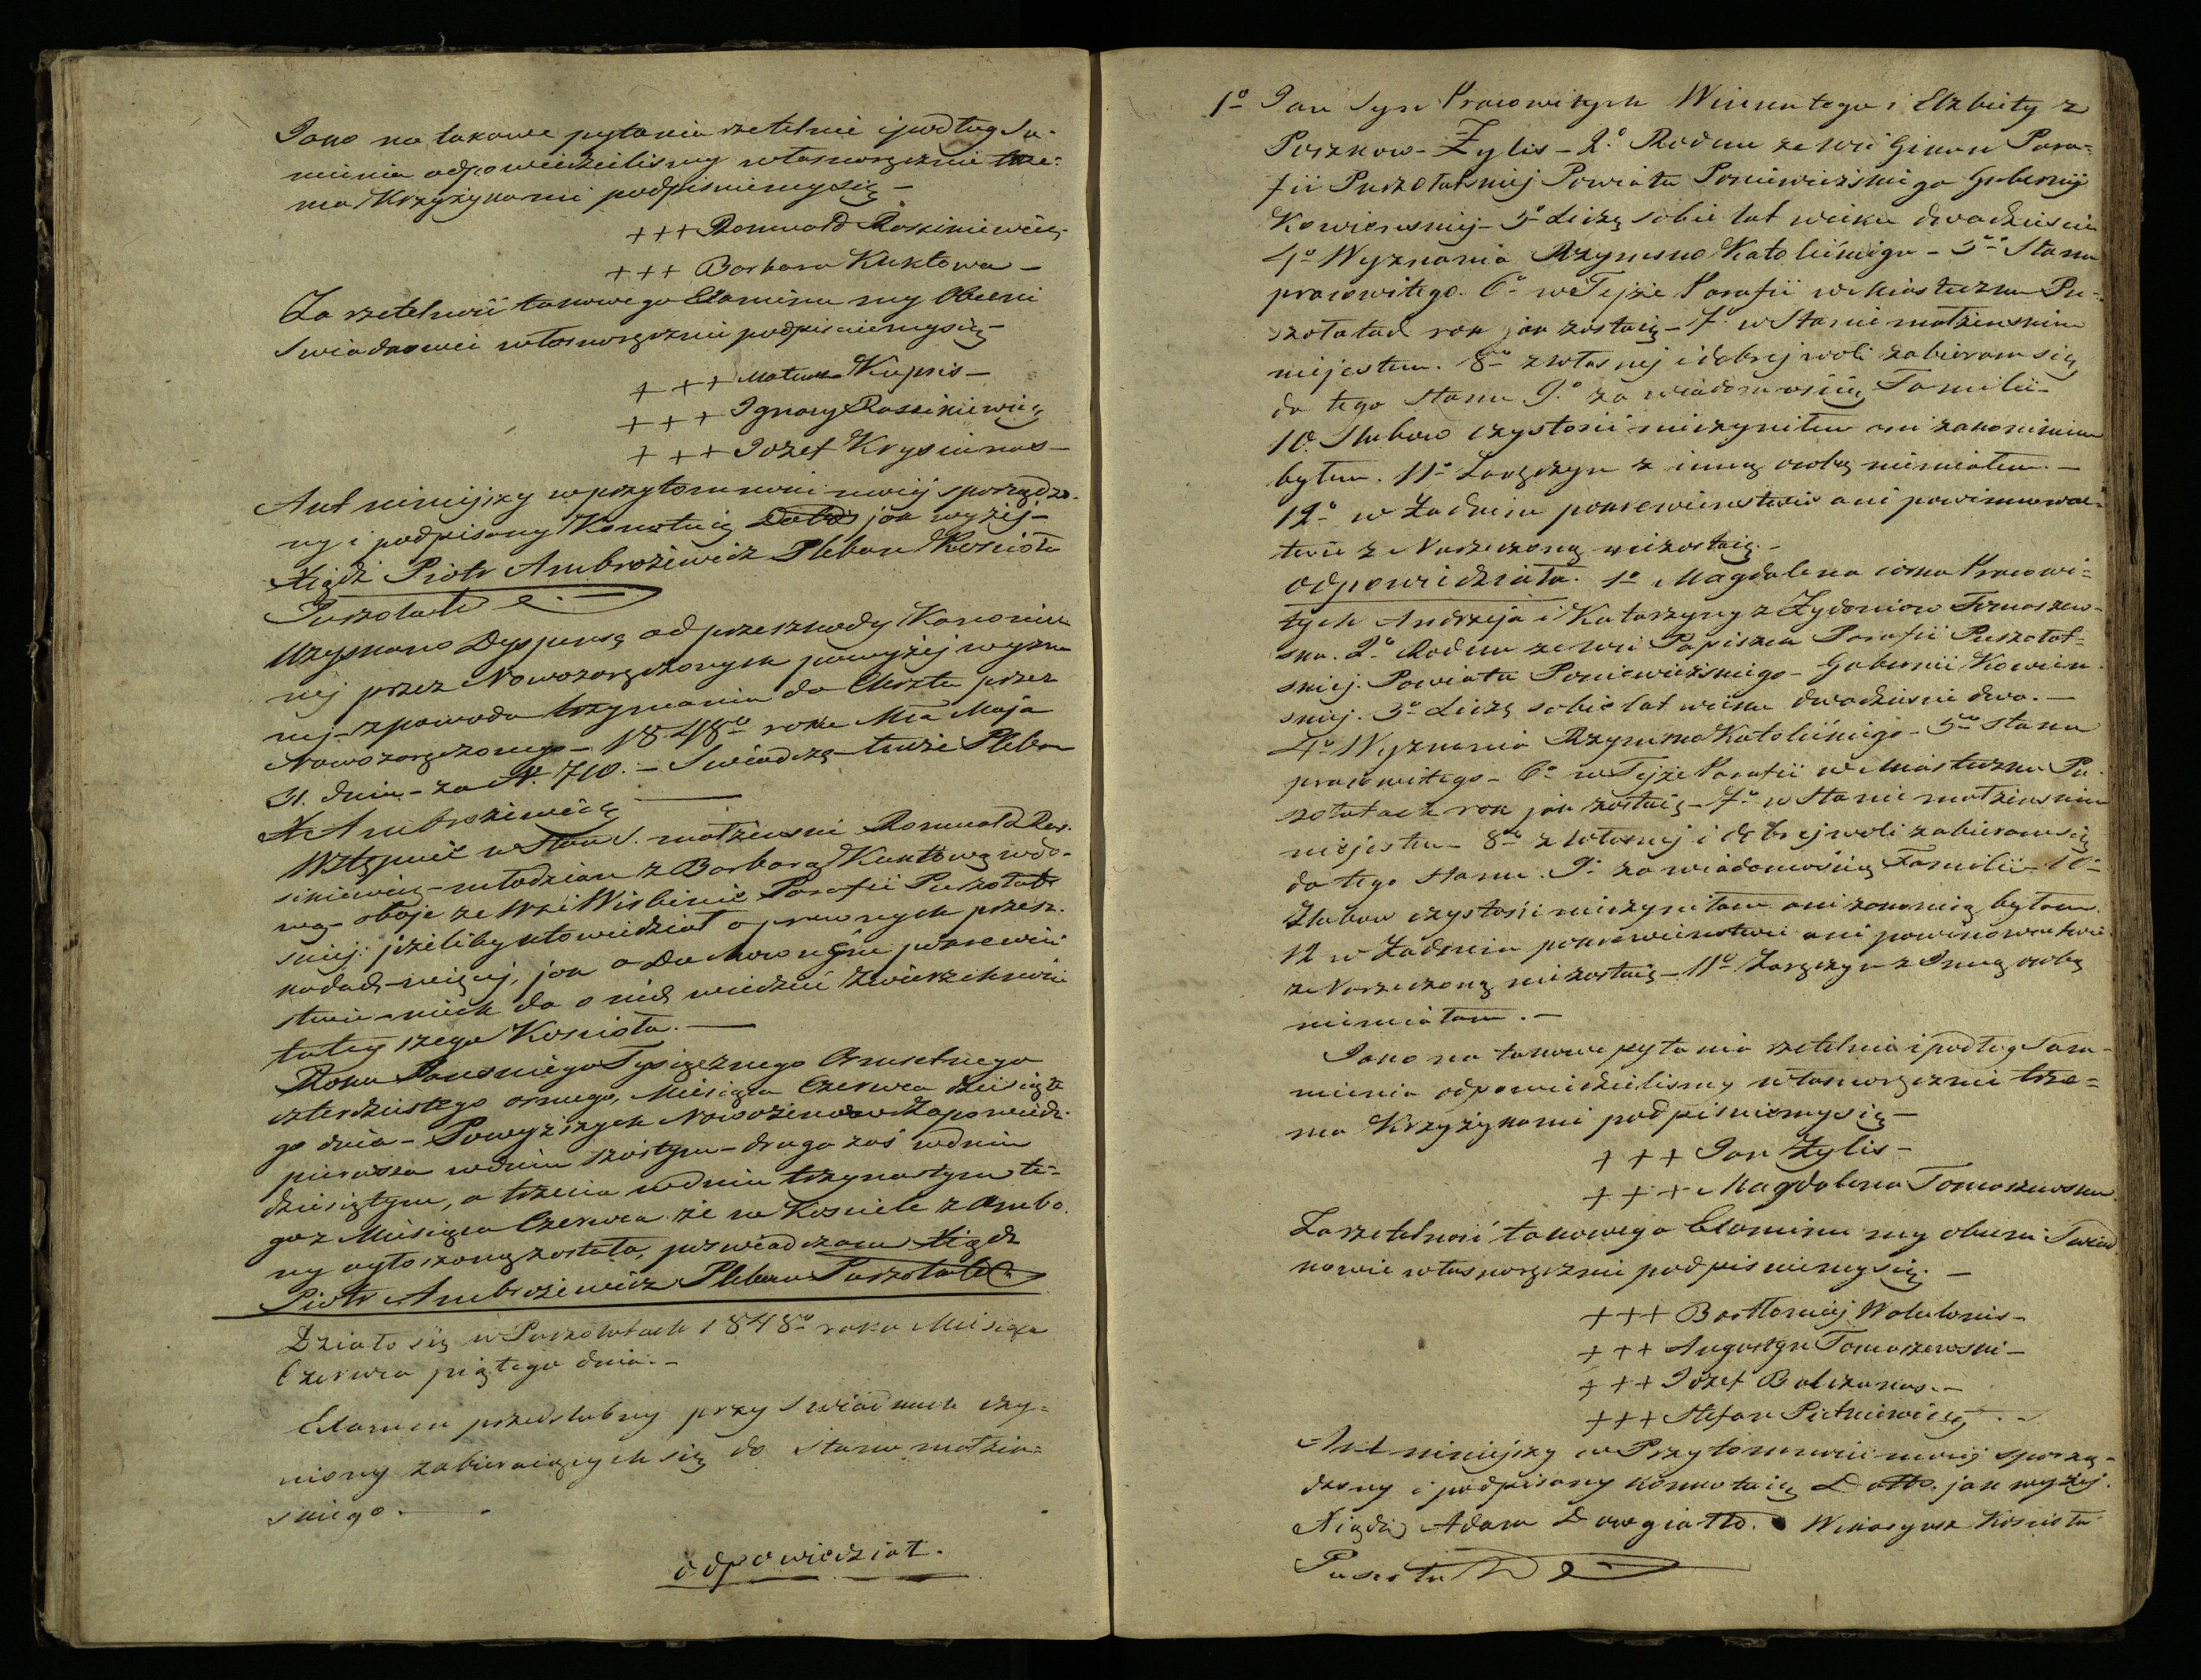 Jako na takowe pytania rzetelnie i podług Su-
mienia odpowiedzieliśmy własnoręcznie trze-
ma Krzyżykami podpisuiemysię –
+++ Romuald Rosiniewicz
+++ Barbara Kuktowa –
Za rzetelność takowego Examinu my Obecni
Swiadkowie własnoręcznie podpisuiemysię –
+++ Kupris –
+++ Ignacy
+++ Jozef Krysiunas –
Akt ninieyszy w przytomności moiéj sporządzo-
ny i podpisany Konnotuię Datto jak wyżéj –
Xiądz Piotr Ambrożewicz Pleban Kościoła
Puszołat
Uzyskano Dyspensę od przeszkody Kanonicz
néj przez Nowozaręczonych powyżéj wyzna
néj – z powodu trzymania do Chrztu przez
Nowozaręczonego – 1848º roku Mca Maja
31. dnia – za N. 710. – Swiadczę tenże Pleban
X Ambrożewicz
Wstąpuie w Stan S. małżenski Romuald Ros-
siniewicz – młodzian z Barbarą Kuktową wdo-
wą – oboje ze Wsi Wirbinie Parafii Puszołat
skiéj: jeżeliby kto wiedział o prawnych przesz-
kodach – więcéj, jak o Duchownym pokrewień
stwie – niech da o nich wiedzieć Zwierzchności
tuteyszego Kościoła. –
Roku Panskiego Tysiącznego Osmsetnego
czterdziestego osmego, Miesiąca Czerwca dziesiąte
go dnia – Powyższych Nowożencow Zapowiedz
pierwsza w dniu szostym – druga zaś w dniu
dziesiątym, a trzecia w dniu trzynastym te-
goz Miesiąca Czerwca że w Kosciele z Ambo-
ny ogłoszoną została, poswiadczam Xiądz
Piotr Ambrożewicz Pleban Puszołat
Działo się w Puszołatach 1848º roku Miesiąca
Czerwca piątego dnia. –
Examen przedslubny przy Swiadkach czy-
niony zabieraiących się do stanu małżeń-
skiego. –
odpowiedział.
1º Jan Syn Pracowitych Wincentego i Elzbiety z
Puszkow – Żylis – 2º Rodem ze wsi Para-
fii Puszołatskiéj Powiatu Poniewieżskiego Gubernij
Kowienskiéj – 3º Liczę sobie lat wieku dwadziescia
4º Wyznania Rzymsko Katolickiego – 5º Stanu
pracowitego. 6º w Tejże Parafii w Miasteczku Pu-
szołatach rok jak zostaię – 7º w Stanie małżenskim
niejestem. 8º z własnej i dobrej woli zabieramsię
do tego stanu 9º za wiadomością Familii –
10. Slubow czystosci nieczyniłem ani zakonnikiem
byłem. 11º Zaręczyn z inną osobą niemiałem. –
12º w Żadném pokrewienstwie ani powinowac-
twie z Narzeczoną niezostaię. –
odpowiedziała. 1º Magdalena corka Pracowi-
tych Andrzeja i Katarzyny z Tomaszew-
ska. 2º Rodem ze wsi Parafii Puszołat-
skiéj. Powiatu Poniewieżskiego – Gubernii Kowien
skiéj. 3º Liczę sobie lat wieku dwadziescie dwa. –
4º Wyznania Rzymsko Katolickiego – 5º stanu
pracowitego – 6º w Tejże Parafii w Miasteczku Pu-
szołatach rok jak zostaię – 7º w Stanie małżenskim
niejestem – 8º z własnej i dobrej woli zabieramsię
do tego stanu. 9º za wiadomością Familii – 10º
Slubow czystosci nieczyniłam ani zakonnicą byłam.
12 w Żadném pokrewienstwie ani powinowactwie
z Narzeczoną niezostaię – 11º Zaręczyn z Inną osobą
niemiałam. –
Jako na takowe pytania rzetelnie i podług Sum-
mienia odpowiedzieliśmy własnoręcznie trze-
ma Krzyżykami podpisuiemysię –
+++ Jan Żylis –
+++ Magdalena Tomaszewska.
Za rzetelność takowego Examinu my obecni Swiad
kowie własnoręcznie podpisuiemysię. –
+++ Bartłomiej
+++ Augustyn Tomaszewski –
+++ Jozef Balczunas. –
+++ Stefan
Akt ninieyszy w Przytomności moiéj sporzą-
dzony i podpisany konnotuię Datto. jak wyżéj.
Xiądz Adam Dowgiałło. Wikaryusz Kościoła